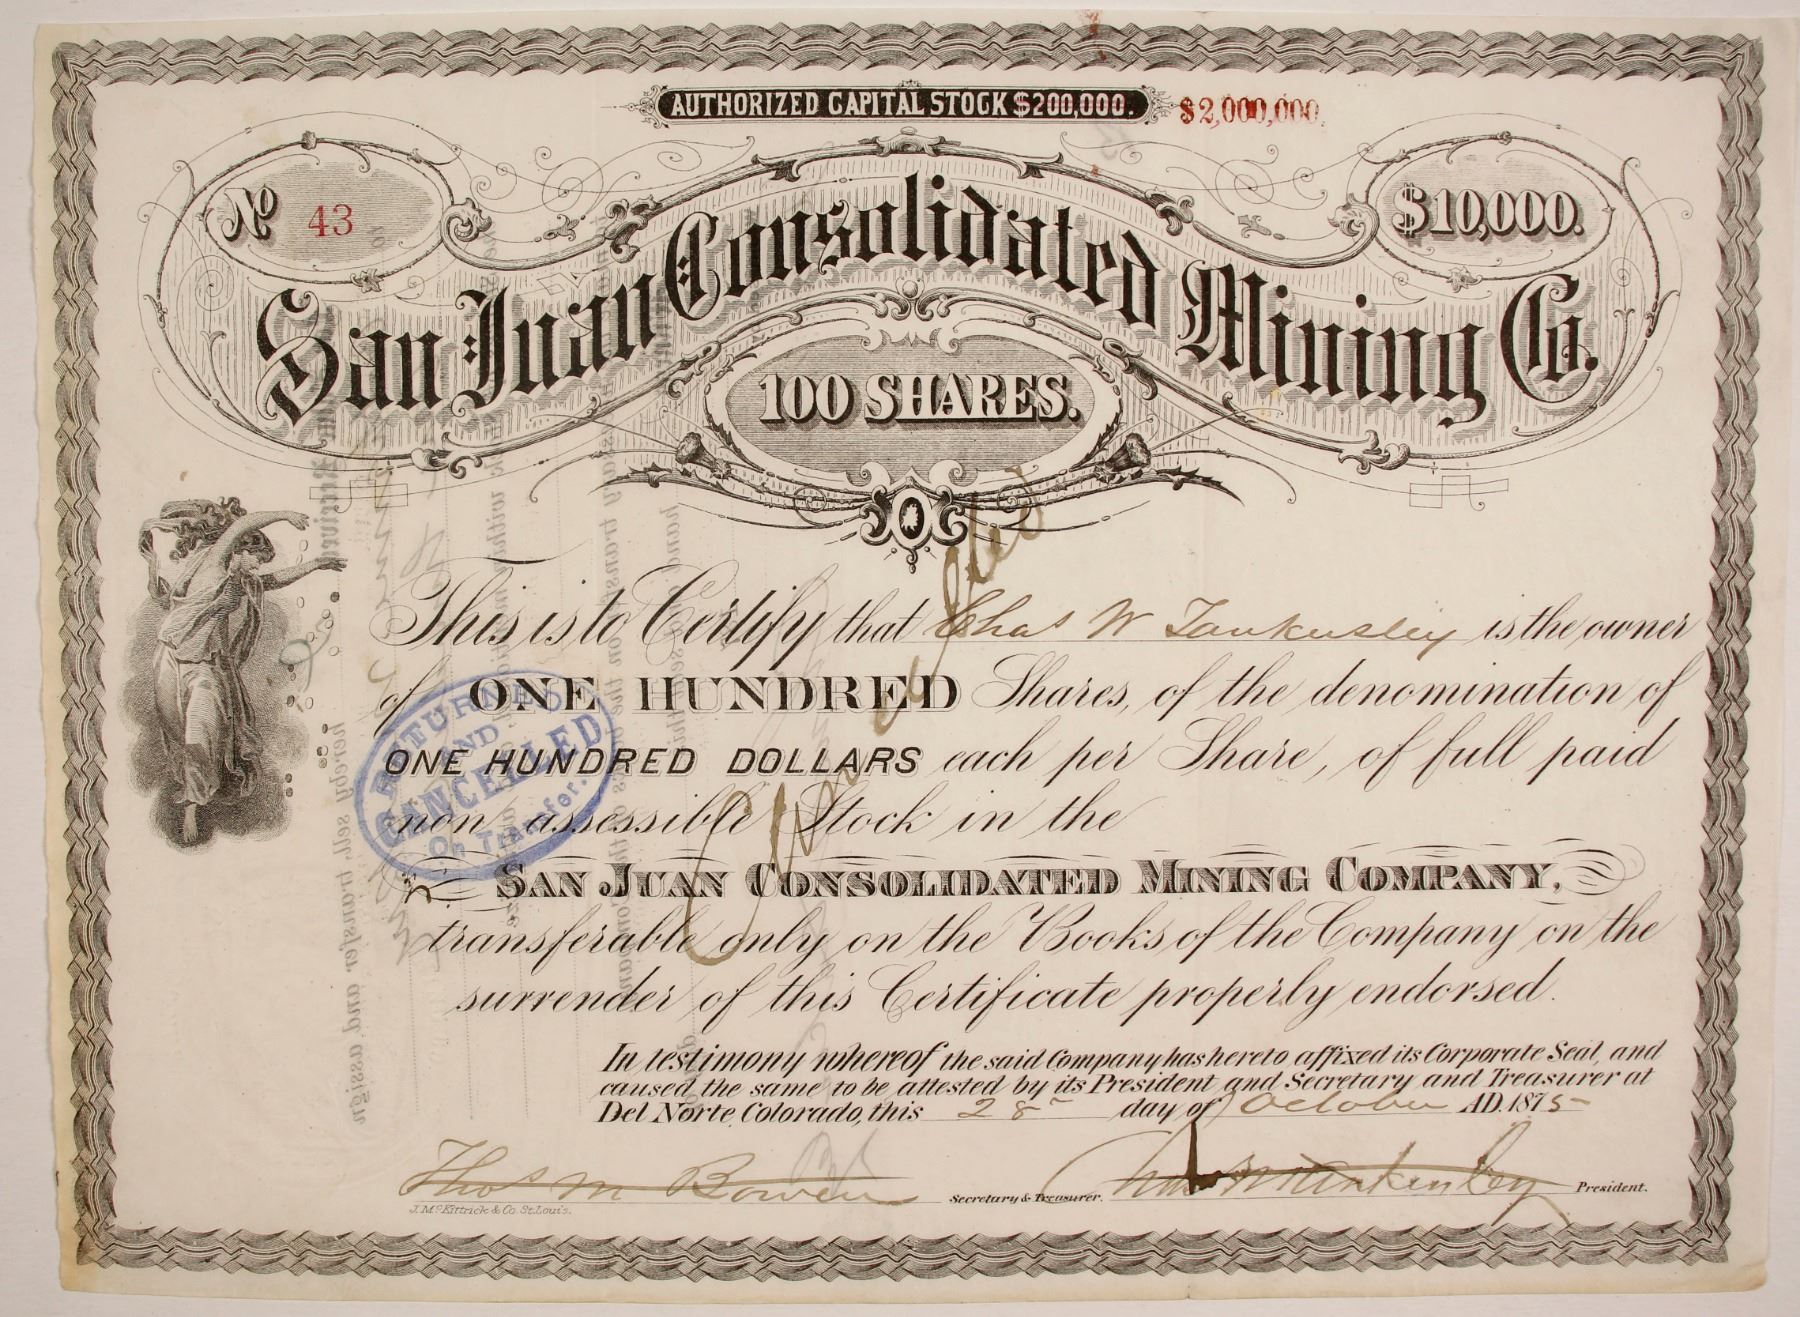 AUTHORIZED CAPITAL STOCK $200,000. $2,000,000.
No 43
$10,000.
San Juan Consolidated Mining Co.
100 SHARES.
This is to Certify that Chas W Tankersley is the owner
of ONE HUNDRED Shares, of the denomination of
ONE HUNDRED DOLLARS each per Share, of full paid
non assessible Stock in the
SAN JUAN CONSOLIDATED MINING COMPANY,
transferable only on the Books of the Company on the
surrender of this Certificate properly endorsed.
RETURNED
AND
CANCELLED
On Transfer.
In testimony whereof the said Company has hereto affixed its Corporate Seal, and
caused the same to be attested by its President and Secretary and Treasurer at
Del Norte, Colorado, this 28 day of October AD. 1875
Thos M Bowen Secretary & Treasurer. Chas W Tankersley President.
J. McKittrick & Co St. Louis.